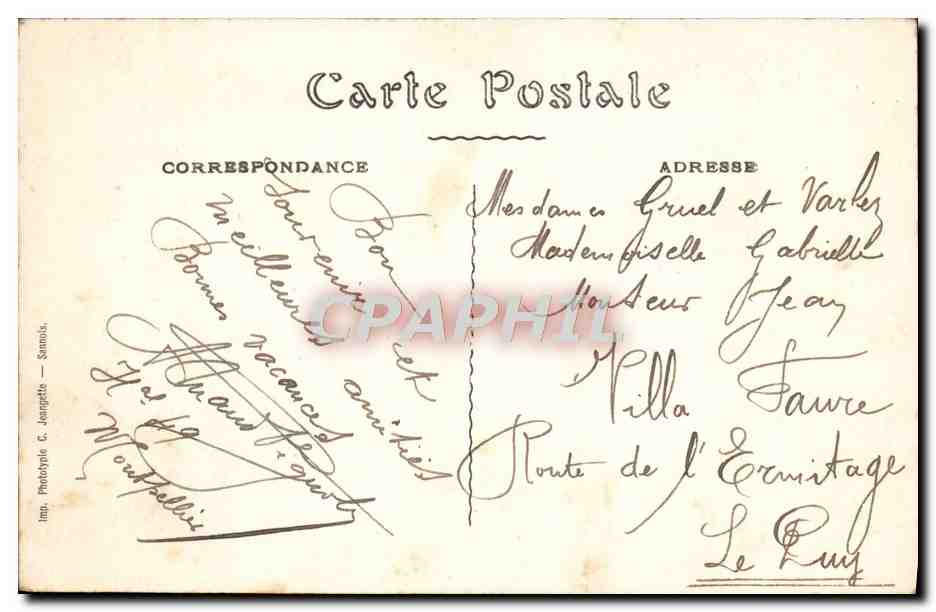 Carte Postale
CORRESPONDANCE
ADRESSE
Bon et
souvenir amitiés
meilleures
Bonnes vacances
Armand
Montpellier
Mesdames Gruel et Varlez
Mademoiselle Gabrielle
Monsieur Jean
Villa Favre
Route de l'Ermitage
Le Puy
Imp. Phototypie C. Jeangette — Sannois.
CPAPHIL